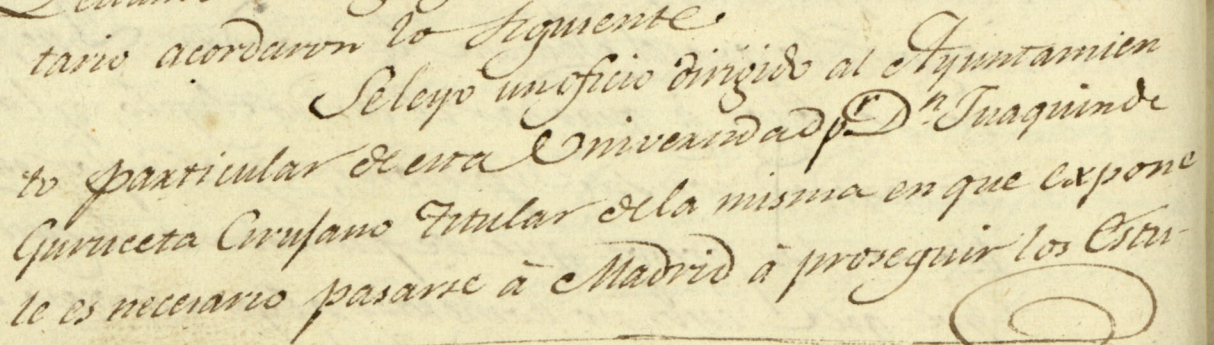 tario acordaron lo siguiente
Se leyo un oficio dirigido al Ayuntamien
to particular de esta Universidad pr. Dn Juaquin de
Guruceta Cirujano titular de la misma en que expone
le es necesario pasarse â Madrid â proseguir los Estu-